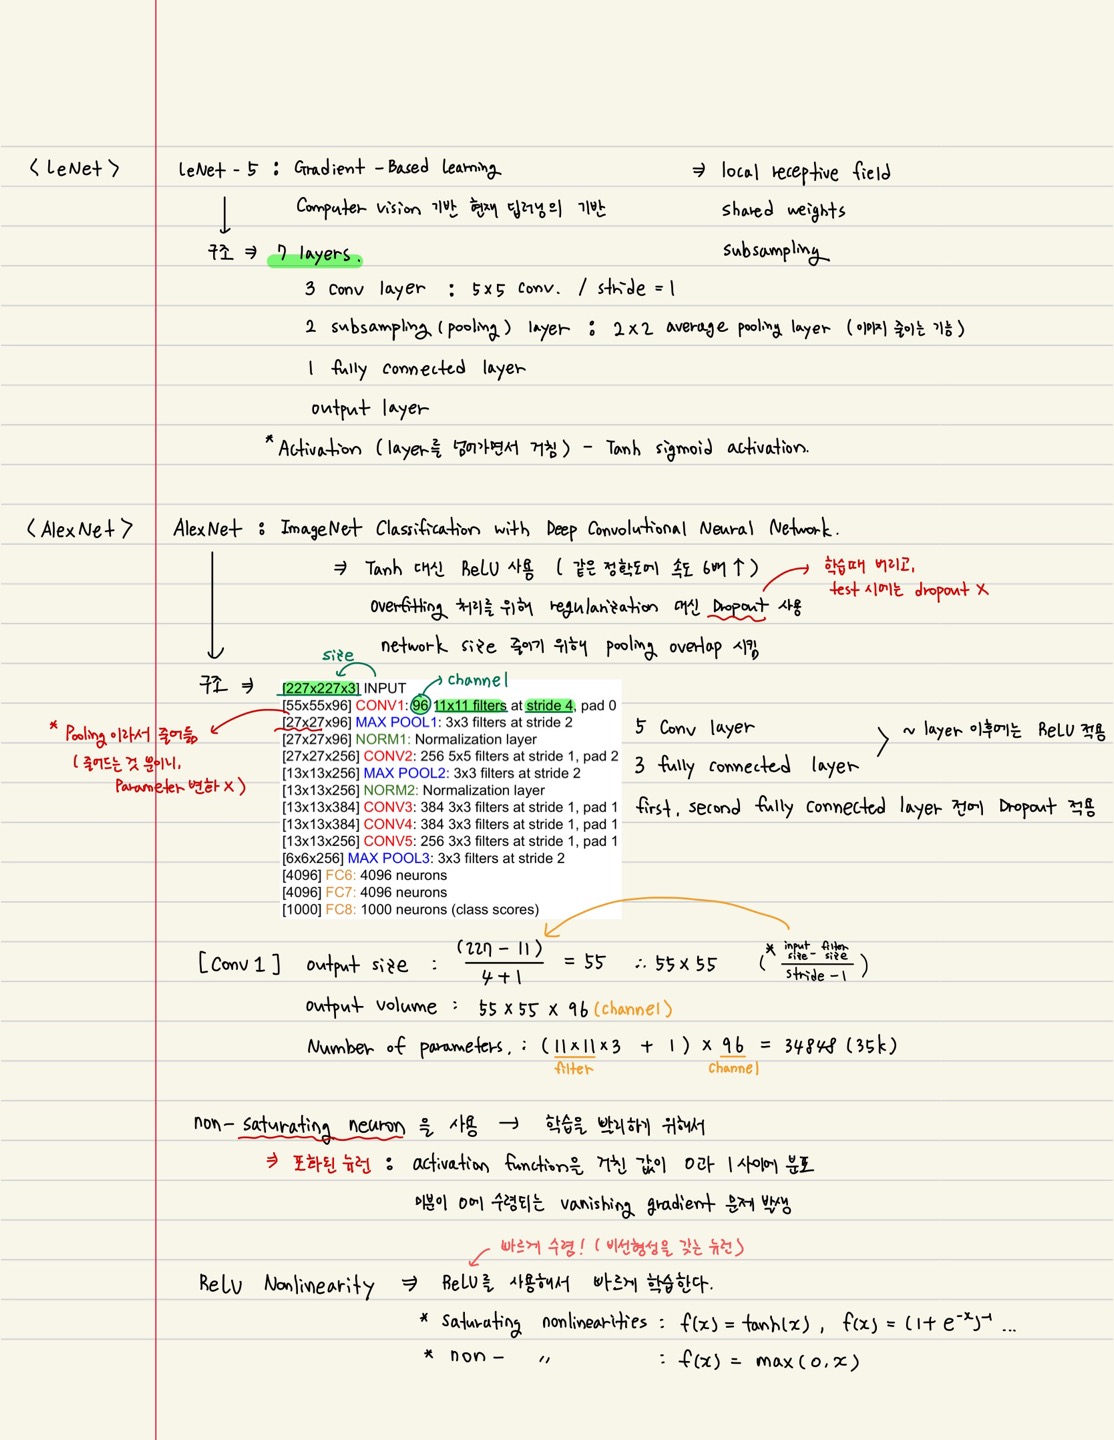 <LeNet>
LeNet - 5 : Gradient - Based learning
⇒ local receptive field
Computer vision 기반 현재 딥러닝의 기반
shared weights
구조 ⇒ 7 layers.
subsampling
3 conv layer : 5x5 conv. / stride = 1
2 subsampling (pooling) layer : 2x2 average pooling layer (이미지 줄이는 기능)
1 fully connected layer
output layer
* Activation (layer를 넘어가면서 거침) - Tanh sigmoid activation.
<AlexNet>
AlexNet : ImageNet Classification with Deep Convolutional Neural Network.
⇒ Tanh 대신 ReLU 사용 (같은 정확도에 속도 6배 ↑)
학습때 버리고,
test 시에는 dropout X
overfitting 처리를 위해 regularization 대신 Dropout 사용
network size 줄이기 위해 pooling overlap 시킴
size
channel
구조 ⇒
[227x227x3] INPUT
[55x55x96] CONV1: 96 11x11 filters at stride 4, pad 0
[27x27x96] MAX POOL1: 3x3 filters at stride 2
[27x27x96] NORM1: Normalization layer
[27x27x256] CONV2: 256 5x5 filters at stride 1, pad 2
[13x13x256] MAX POOL2: 3x3 filters at stride 2
[13x13x256] NORM2: Normalization layer
[13x13x384] CONV3: 384 3x3 filters at stride 1, pad 1
[13x13x384] CONV4: 384 3x3 filters at stride 1, pad 1
[13x13x256] CONV5: 256 3x3 filters at stride 1, pad 1
[6x6x256] MAX POOL3: 3x3 filters at stride 2
[4096] FC6: 4096 neurons
[4096] FC7: 4096 neurons
[1000] FC8: 1000 neurons (class scores)
* Pooling 이라서 줄어듦
(줄어드는 것 뿐이니,
Parameter 변화 X)
5 Conv layer
3 fully connected layer
~ layer 이후에는 ReLU 적용
first, second fully connected layer 전에 Dropout 적용
[Conv 1] output size : (227 - 11) / 4 + 1 = 55 ∴ 55 x 55 (* input size - filter size / stride - 1)
output volume : 55 x 55 x 96 (channel)
Number of parameters. : (11x11x3 + 1) x 96 = 34848 (35k)
filter
channel
non- saturating neuron 을 사용 → 학습을 빨리하기 위해서
⇒ 포화된 뉴런 : activation function을 거친 값이 0과 1 사이에 분포
미분이 0에 수렴되는 vanishing gradient 문제 발생
빠르게 수렴! (비선형성을 갖는 뉴런)
ReLU Nonlinearity ⇒ ReLU를 사용해서 빠르게 학습한다.
* saturating nonlinearities : f(x) = tanh(x), f(x) = (1 + e^-x)^-1 ...
* non - 〃 : f(x) = max(0, x)